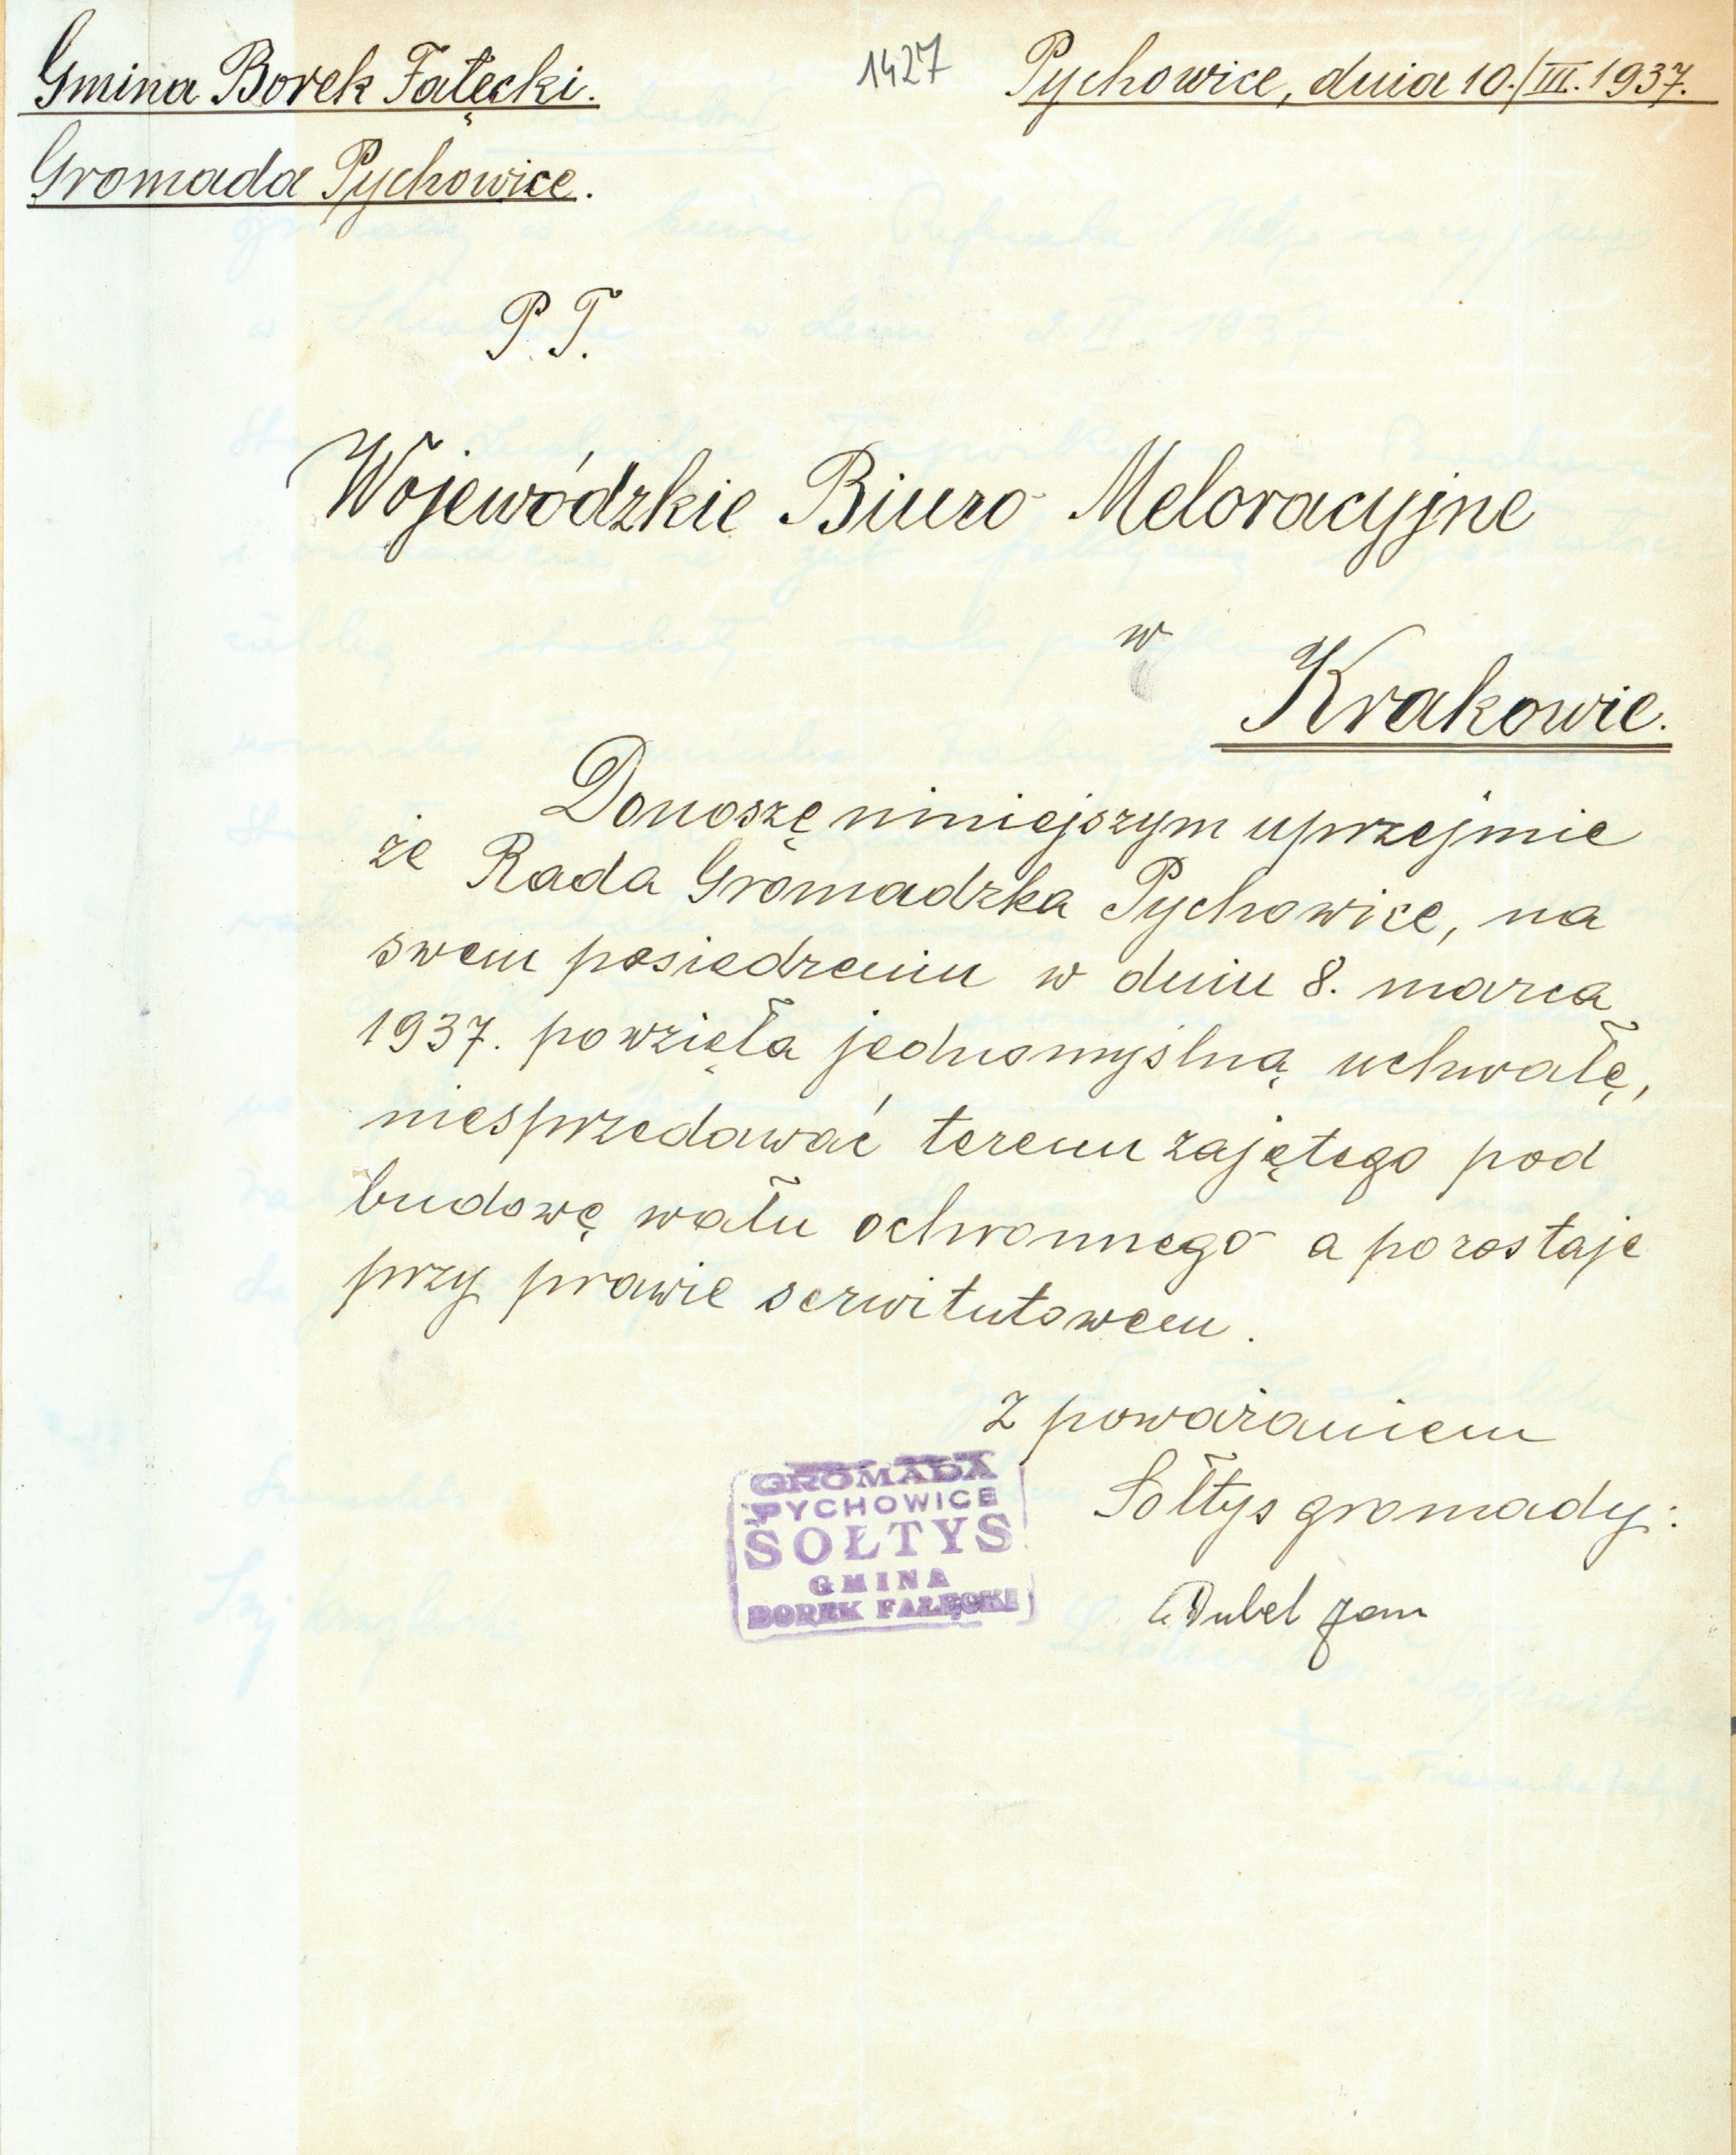 Gmina Borek Fałęcki.
1427
Pychowice, dnia 10./III.1937.
Gromada Pychowice.
P. T.
Wojewódzkie Biuro Meloracyjne
w
Krakowie.
Donoszę niniejszym uprzejmie
że Rada Gromadzka Pychowice, na
swem posiedzeniu w dniu 8. marca
1937. powzięła jednomyślną uchwałę,
niesprzedawać terenu zajętego pod
budowę wału ochronnego a pozostaje
przy prawie serwitutowem.
z poważaniem
Sołtys gromady:
Dubel Jan
GROMADA
PYCHOWICE
SOŁTYS
GMINA
BOREK FAŁĘCKI